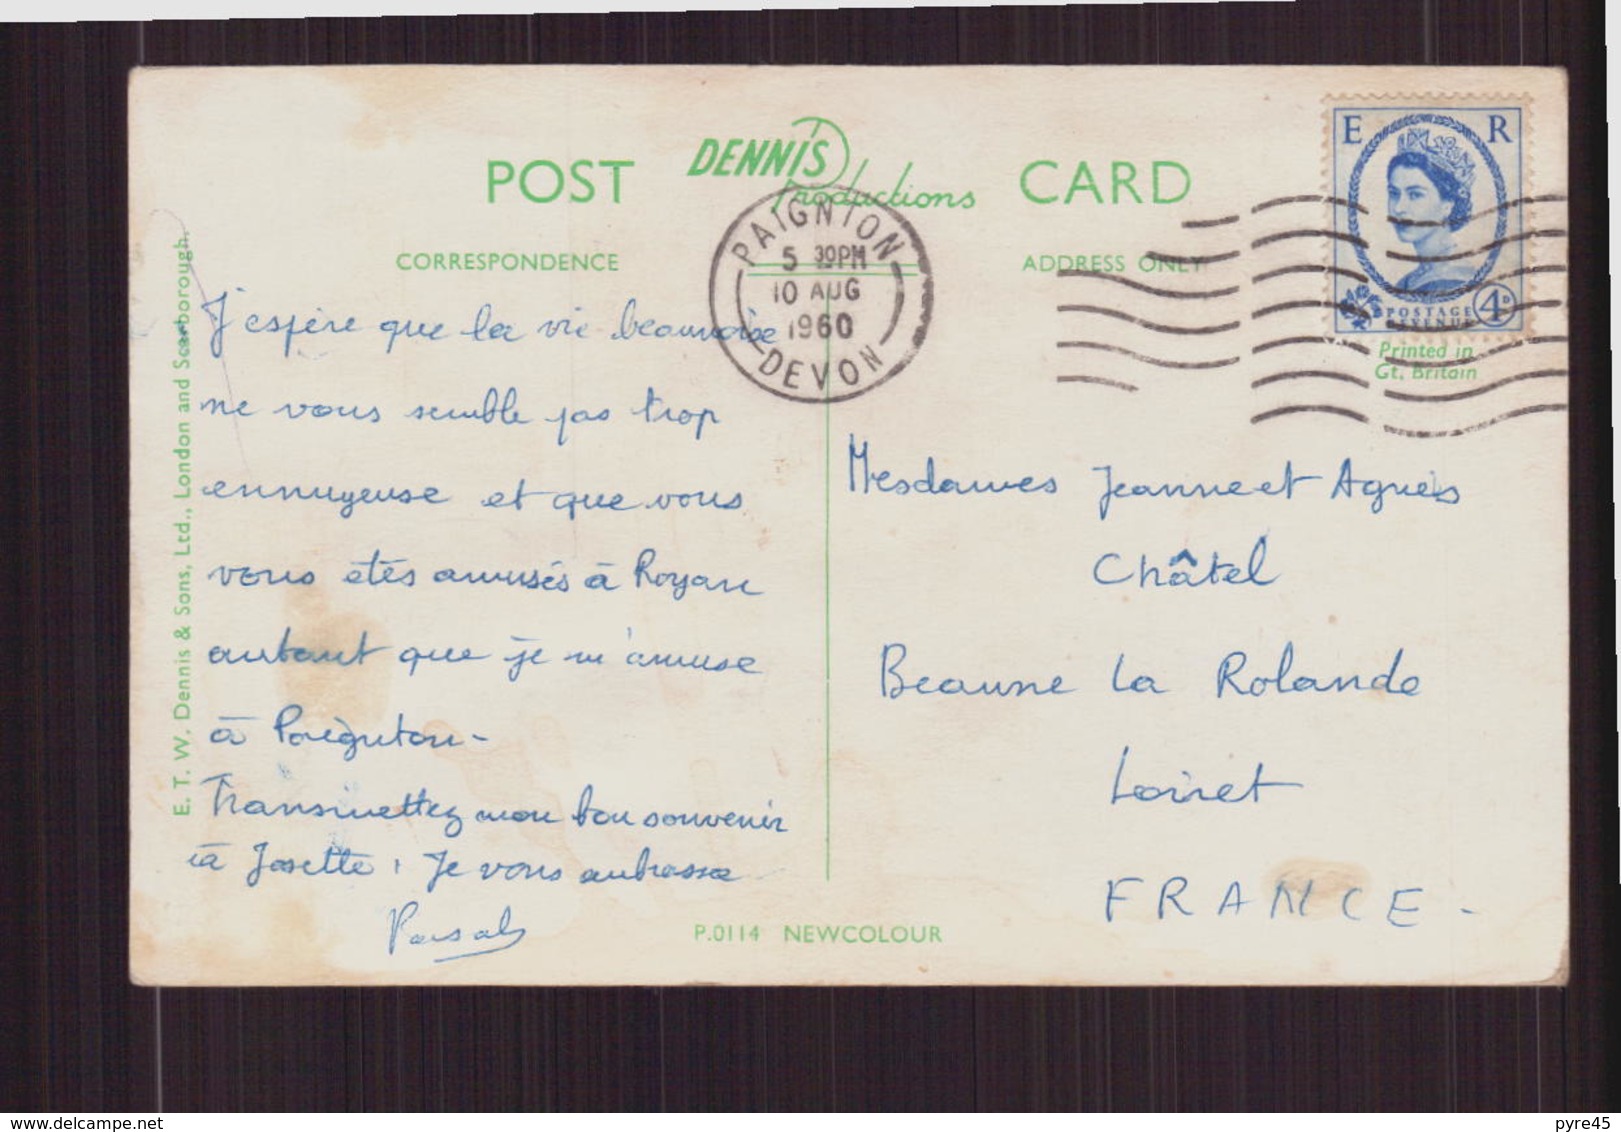 POST DENNIS Productions CARD
CORRESPONDENCE
ADDRESS ONLY
E R
POSTAGE
REVENUE
4D
Printed in
Gt. Britain
PAIGNTON
5 30PM
10 AUG
1960
DEVON
E. T. W. Dennis & Sons, Ltd., London and Scarborough.
J'espère que la vie beaunoise
ne vous semble pas trop
ennuyeuse et que vous
vous êtes amusés à Royan
autant que je m'amuse
à Paignton -
Transmettez mon bon souvenir
à Josette, Je vous embrasse
Pascal
Mesdames Jeanne et Agnès
Châtel
Beaune La Rolande
Loiret
FRANCE -
P.0114 NEWCOLOUR
delcampe.net
pyre45